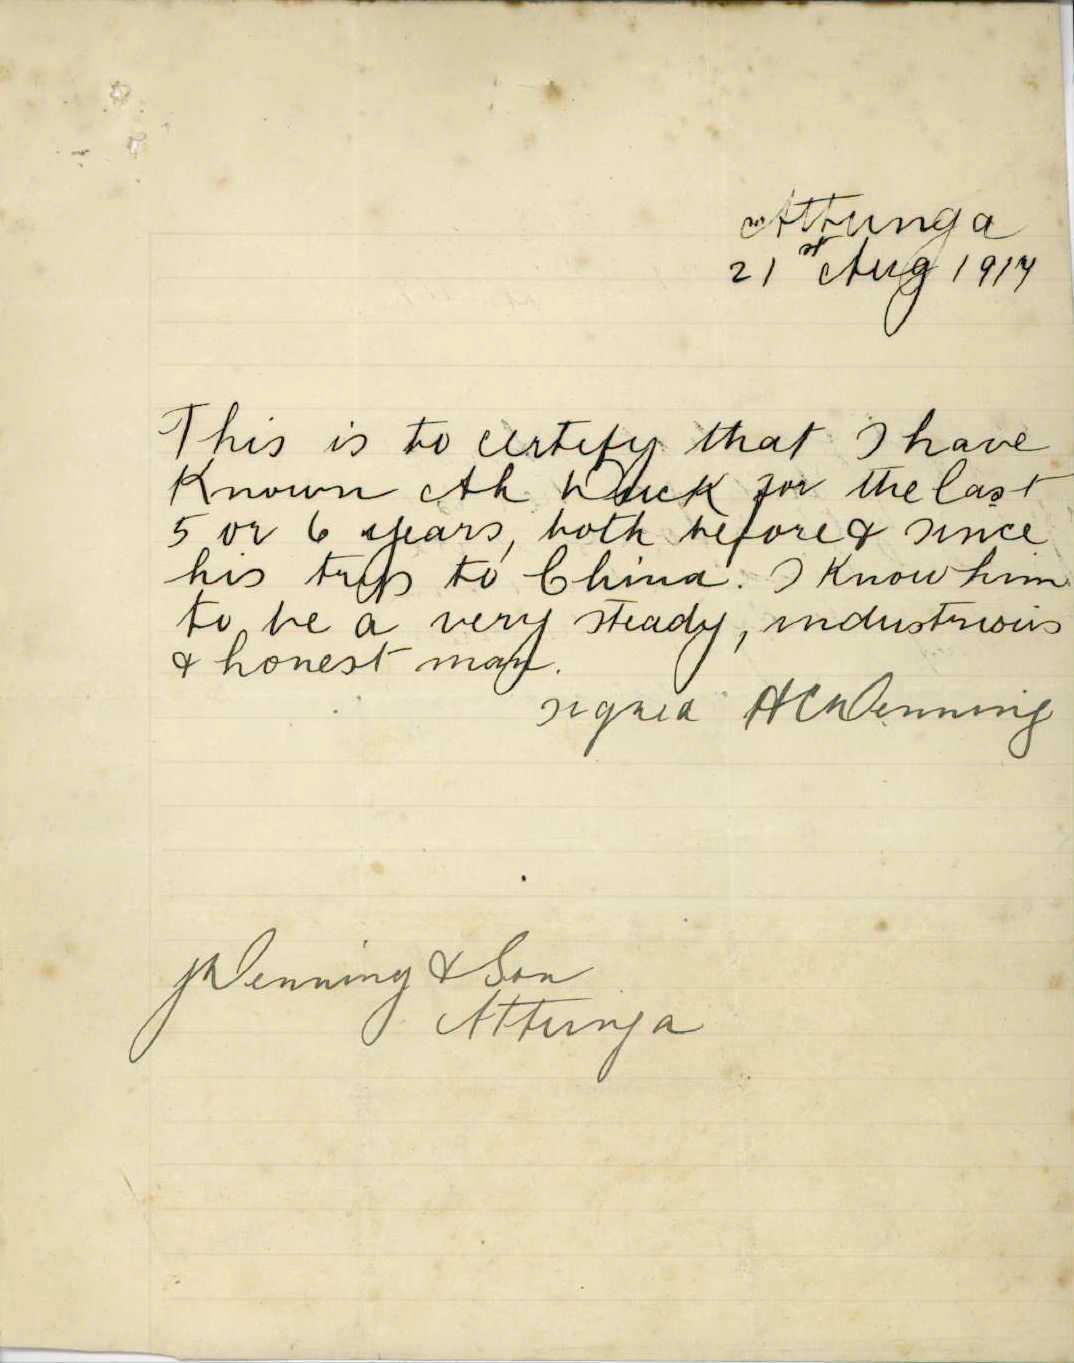 Attunga
21st Aug 1917
This is to certify that I have
Known Ah Duck for the last
5 or 6 years, both before & since
his trip to China. I Know him
to be a very steady, industrious
& honest man.
signed H C Denning
J Denning & Son
Attunga